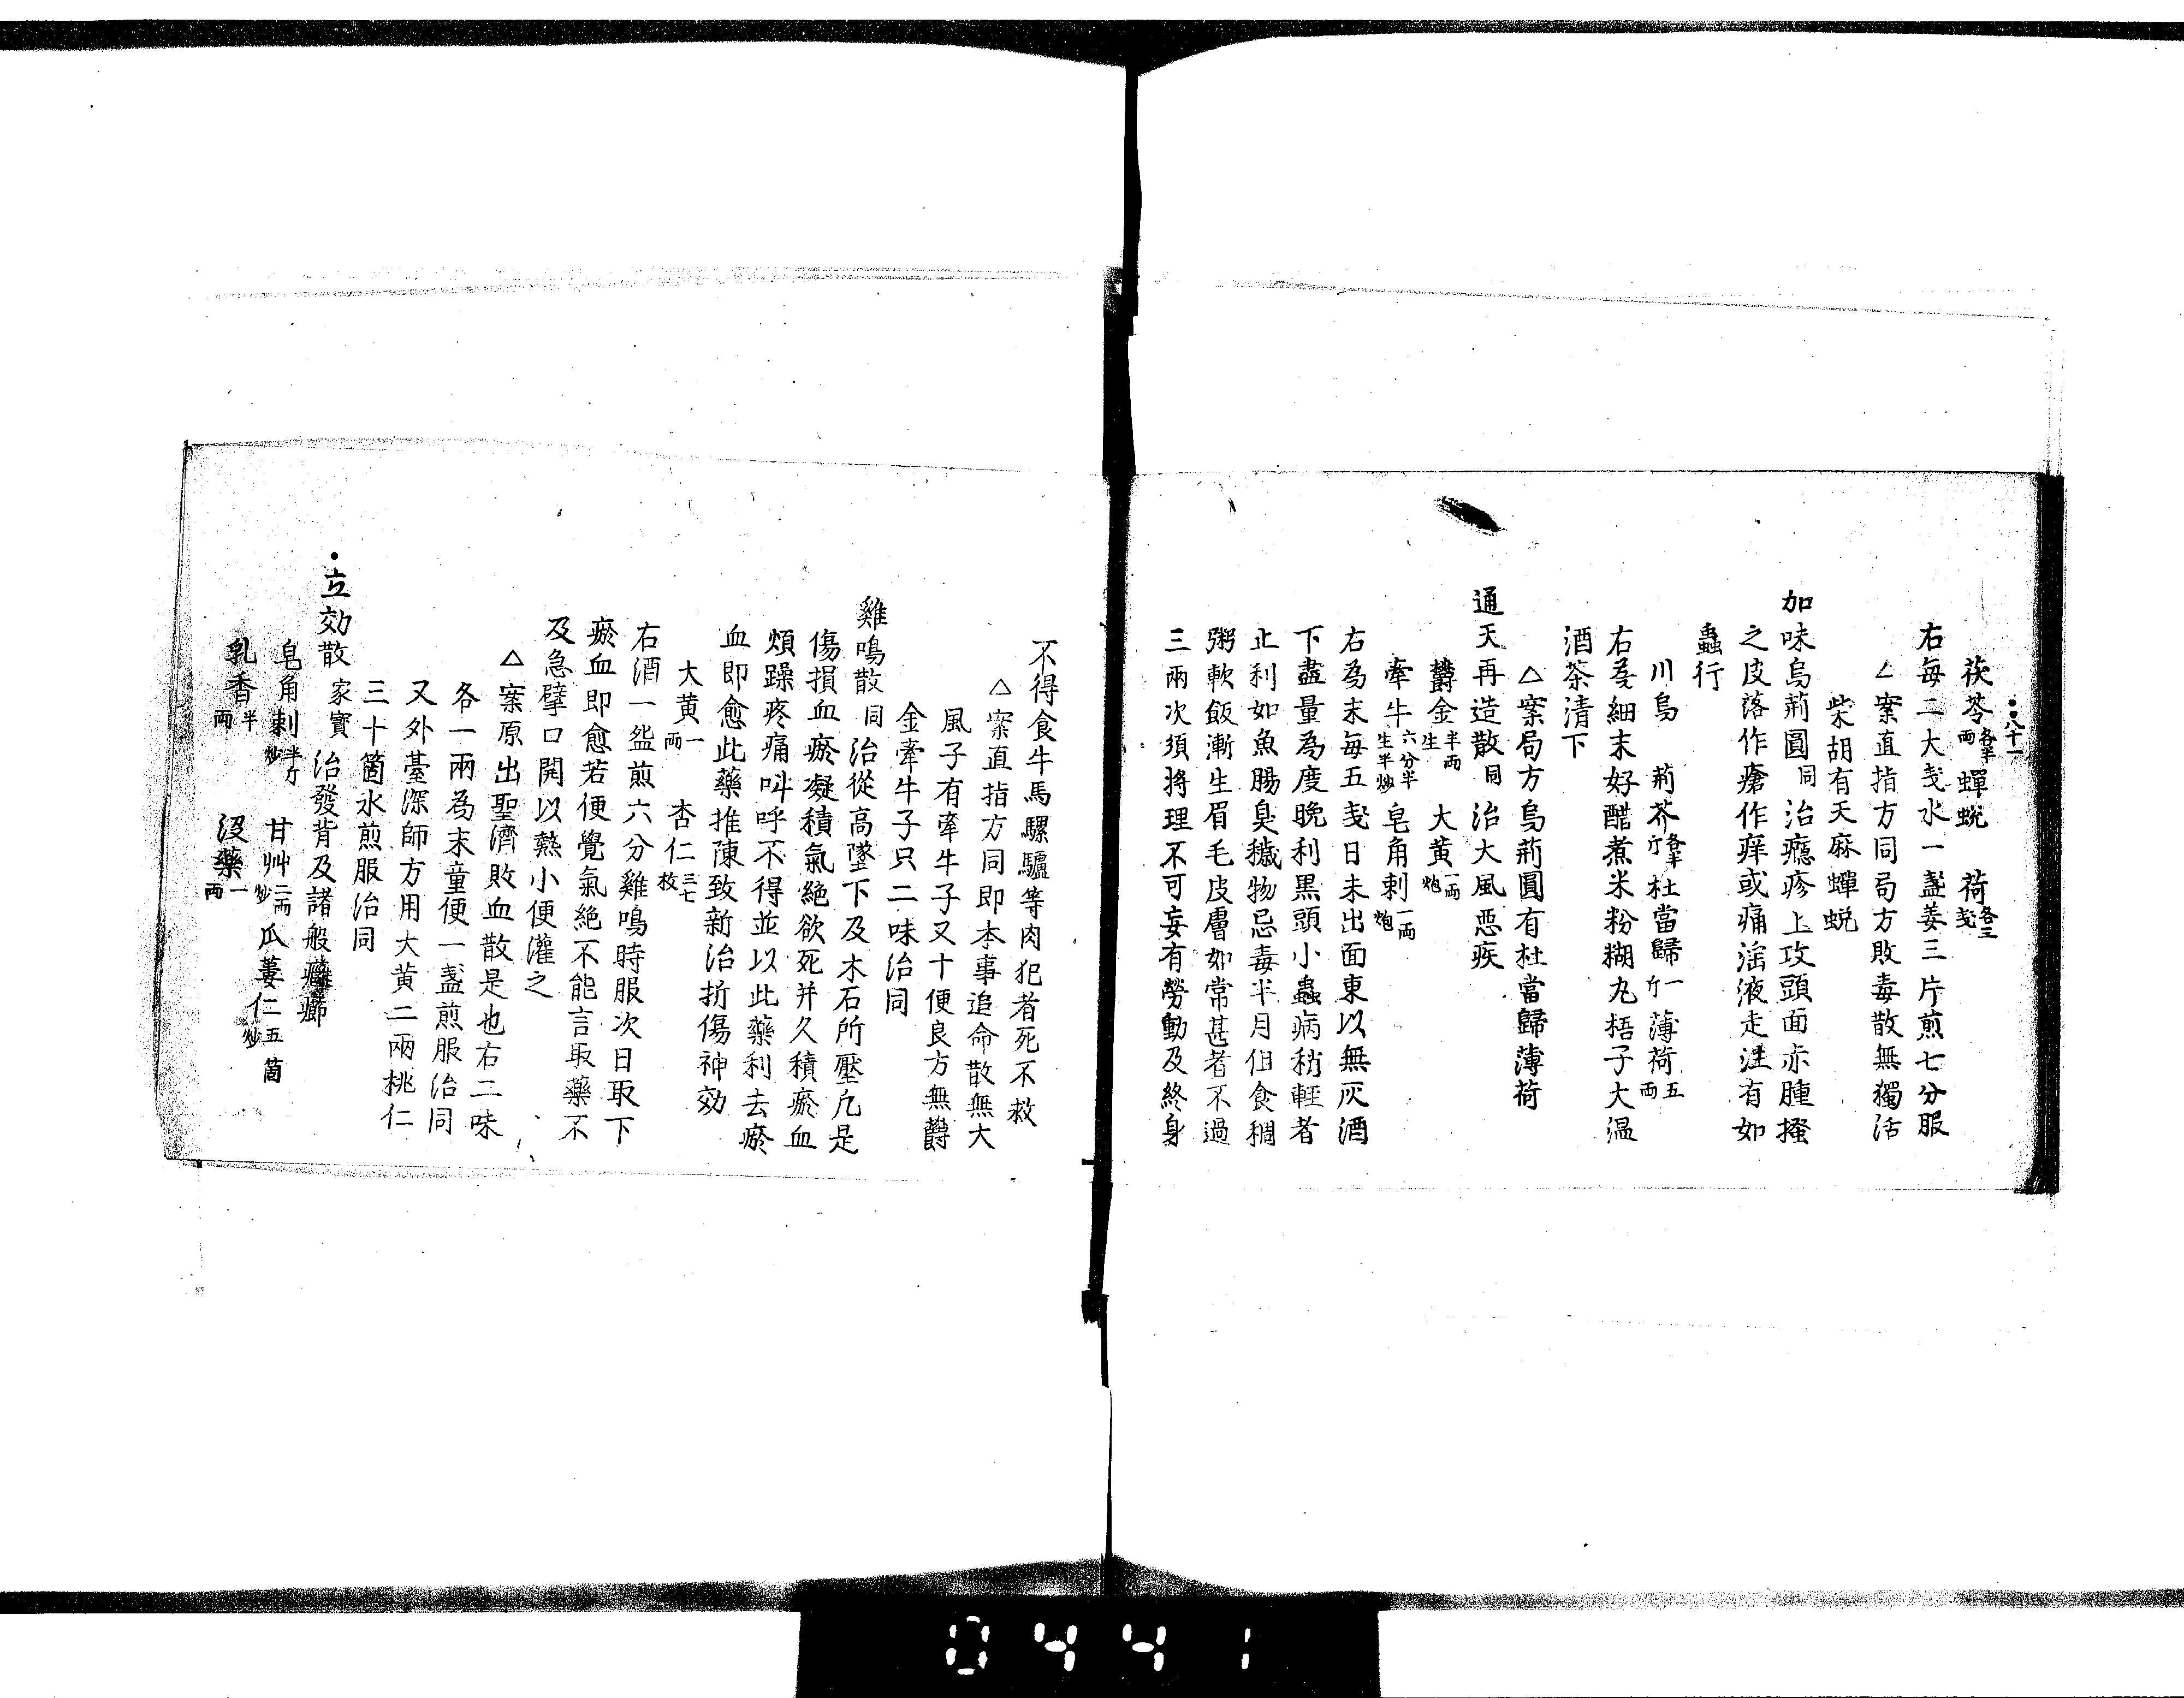 八十一
茯苓各半両 蟬蛻 荷各三戔
右每二大戔水一盞姜三片煎七分服
△案直指方同局方敗毒散無獨活
柴胡有天麻蟬蛻
加味烏荊圓同治癮疹上攻頭面赤腫搔
之皮落作瘡作痒或痛滛液走注有如
蟲行
川烏 荊芥各半斤 杜當歸一斤 薄荷五両
右為細末好醋煮米粉糊丸梧子大溫
酒茶清下
△案局方烏荊圓有杜當歸薄荷
通天再造散同治大風惡疾
欝金半両生 大黃一両炮
牽牛六分半生半炒 皂角刺一両炮
右為末每五戔日未出面東以無灰酒
下盡量為度晚利黒頭小蟲病稍輕者
止利如魚腸臭穢物忌毒半月但食稠
粥軟飯漸生眉毛皮膚如常甚者不過
三兩次須將理不可妄有勞動及終身
不得食牛馬騾驢等肉犯者死不救
△案直指方同即本事追命散無大
風子有牽牛子又十便良方無欝
金牽牛子只二味治同
雞鳴散同治從高墜下及木石所壓凢是
傷損血瘀凝積氣絕欲死并久積瘀血
煩躁疼痛叫呼不得並以此藥利去瘀
血即愈此藥推陳致新治折傷神効
大黃一両 杏仁三七枚
右酒一盌煎六分雞鳴時服次日取下
瘀血即愈若便覺氣絕不能言取藥不
及急擘口開以熱小便灌之
△案原出聖濟敗血散是也右二味
各一兩為末童便一盞煎服治同
又外臺深師方用大黃二兩桃仁
三十箇水煎服治同
立効散家寶治發背及諸般癰癤
皂角刺半斤炒 甘艸二両炒 瓜蔞仁五箇炒
乳香半両 没藥一両
0441